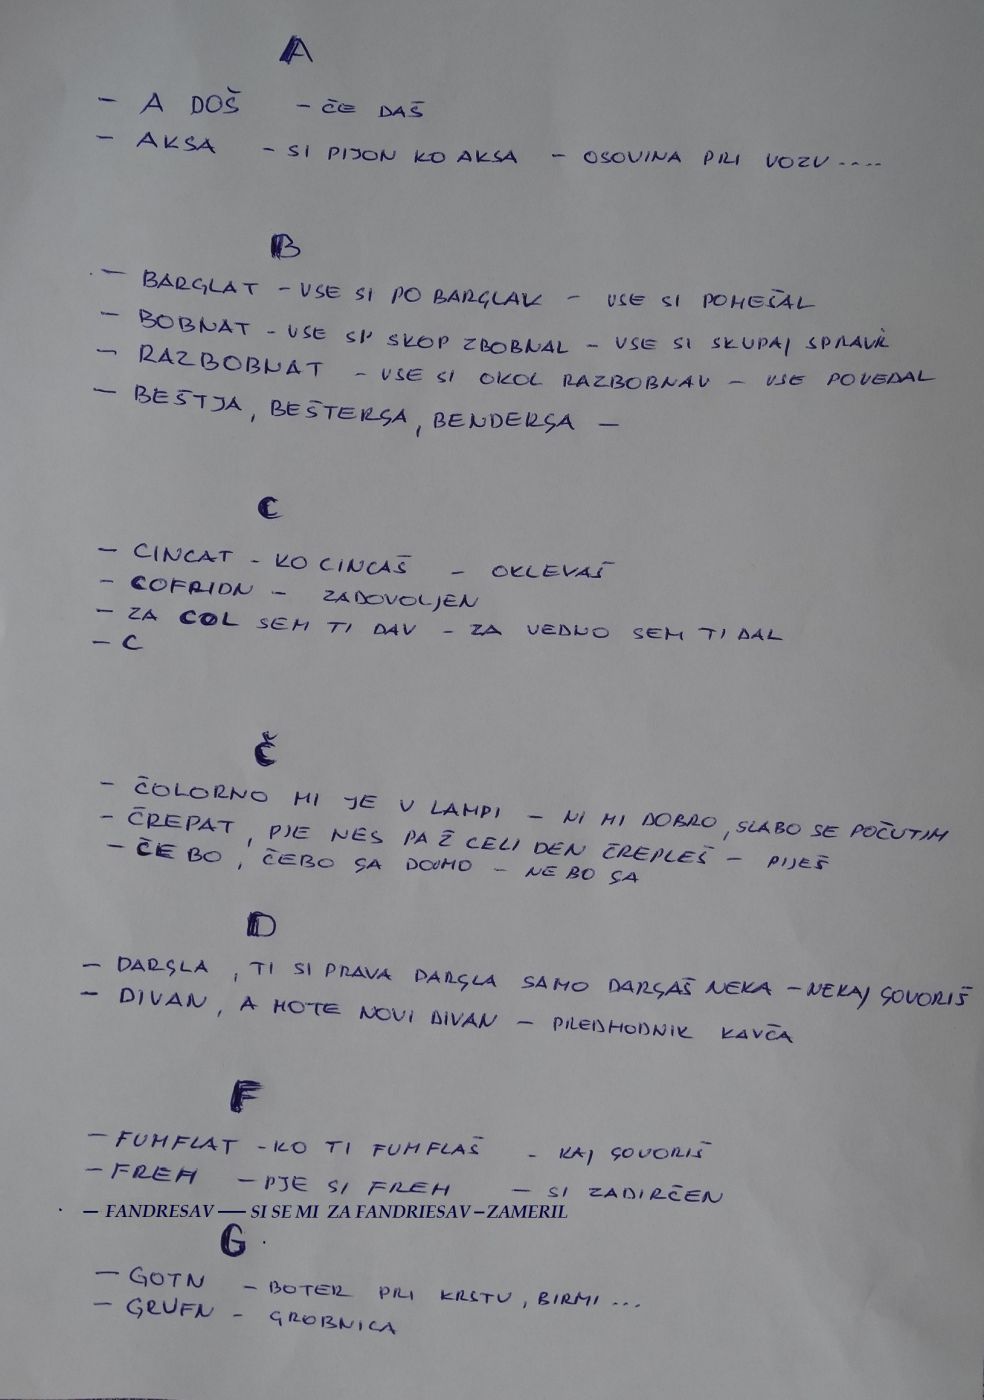 A
- A DOŠ - ČE DAŠ
- AKSA - SI PIJON KO AKSA - OSOVINA PRI VOZU ....
B
- BARGLAT - VSE SI PO BARGLAV - VSE SI POMEŠAL
- BOBNAT - VSE SI SKOP ZBOBNAL - VSE SI SKUPAJ SPRAVIL
- RAZBOBNAT - VSE SI OKOL RAZBOBNAV - VSE POVEDAL
- BEŠTJA, BEŠTERGA, BENDERGA -
C
- CINCAT - KO CINCAŠ - OKLEVAŠ
- COFRIDN - ZADOVOLJEN
- ZA COL SEM TI DAV - ZA VEDNO SEM TI DAL
- C
Č
- ČOLORNO MI JE V LAMPI - NI MI DOBRO, SLABO SE POČUTIM
- ČREPAT, PJE NES PA Ž CELI DEN ČREPLEŠ - PIJEŠ
- ČE BO, ČEBO GA DOMO - NE BO GA
D
- DARGLA, TI SI PRAVA DARGLA SAMO DARGAŠ NEKA - NEKAJ GOVORIŠ
- DIVAN, A HOTE NOVI DIVAN - PREDHODNIK KAVČA
F
- FUMFLAT - KO TI FUMFLAŠ - KAJ GOVORIŠ
- FREH - PJE SI FREH - SI ZADIRČEN
- FANDRESAV — SI SE MI ZA FANDRIESAV – ZAMERIL
G
- GOTN - BOTER PRI KRSTU, BIRMI ...
- GRUFN - GROBNICA